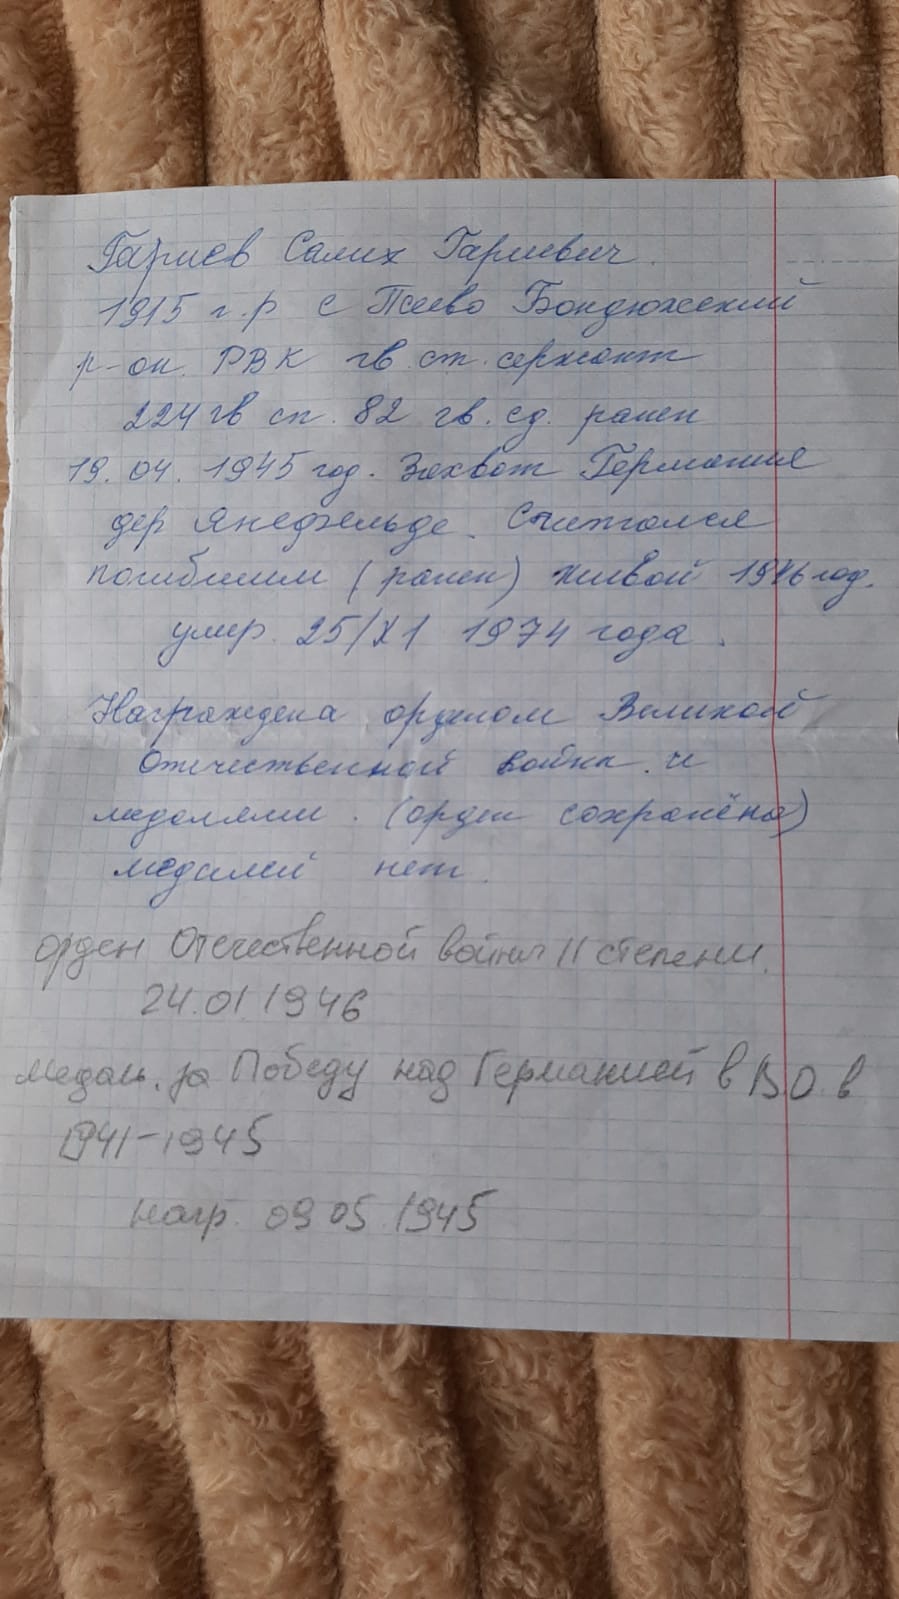 Гариев Салих Гариевич.
1915 г.р с Псеево Бондюжский
р-он. РВК гв. ст. сержант
224 гв сп. 82 гв. сд. ранен
19. 04. 1945 год. Захват Германия
дер Янсфельде. Считался
погибшим (ранен) живой 1946 год.
умер. 25/XI 1974 года.
Награждена орденом Великой
Отечественной война. и
медалями. (орден сохранёна)
медалей нет.
орден Отечественной войны II степени.
24.01.1946
медаль. за Победу над Германией в В.О. в
1941-1945
нагр. 09 05. 1945